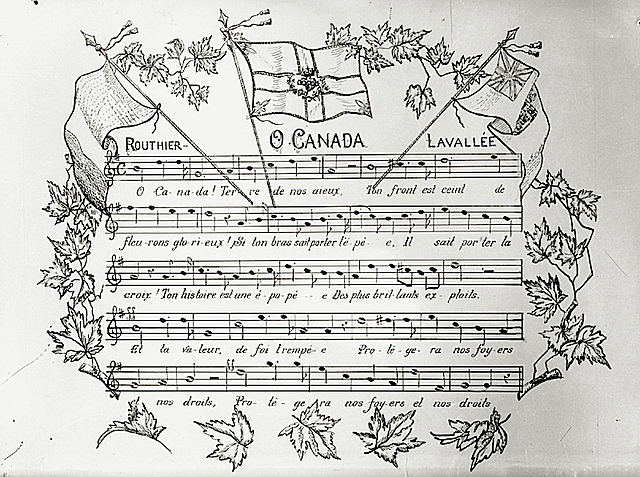 ROUTHIER- O CANADA LAVALLÉE
O Ca-na-da! Ter-re de nos aïeux, Ton front est ceint de
fleu-rons glo-ri-eux! Et ton bras sait porter l'é-pé-e, Il sait por'ter la
croix! Ton histoire est une é-po-pé--e Des plus bril-lants ex-ploits.
Et ta va-leur, de foi trempé-e Pro-té-ge-ra nos foy-ers
et nos droits, Pro-té-ge-ra nos foy-ers et nos droits